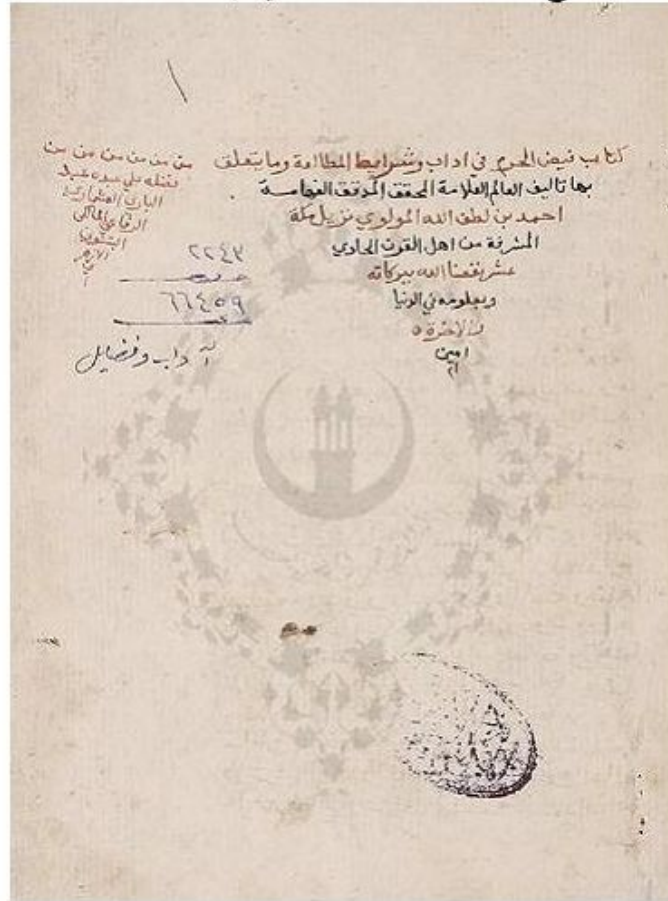 كتاب فيض الحرم في اداب وشرايط المطالعة وما يتعلق
بها تاليف العالم العلامة المحقق المدقق الفهامة
احمد بن لطف الله المولوي نزيل مكة
المشرفة من اهل القرن الحادي
عشر نفعنا الله ببركاته
وبعلومه في الدنيا
والاخرة
امين
من من من من من من
فضله على عبده عبد
الباري العشماوي
الرفاعي المالكي
الازهر
٢٢٤٣
٦٦٤٥٩
آداب وفضايل